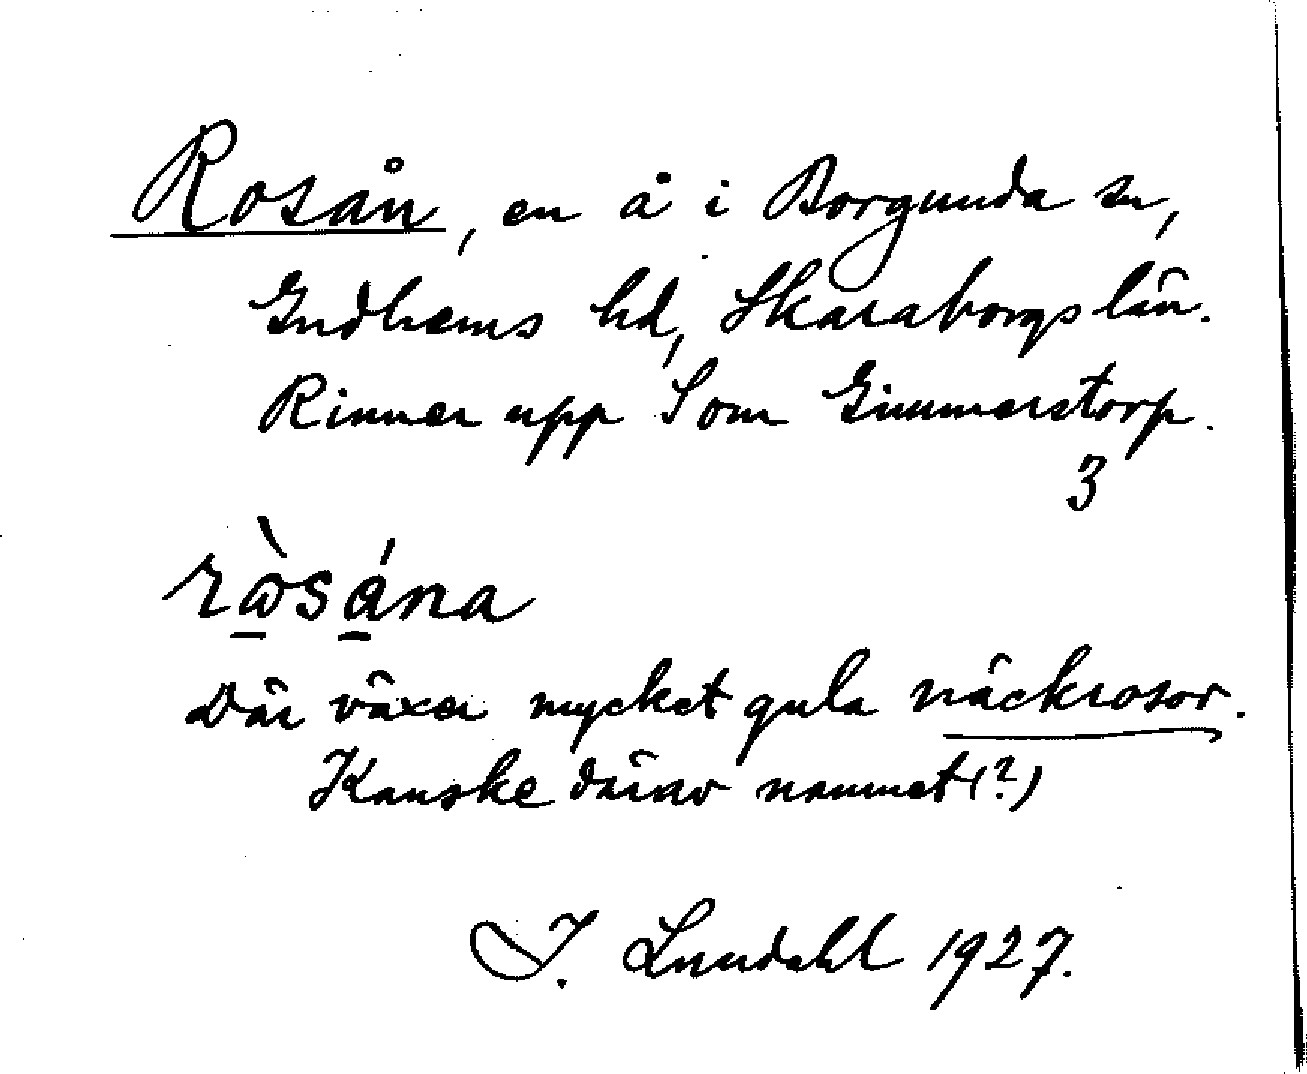 Rosån, en å i Borgunda sn,
Gudhems hd, Skaraborgs län.
Rinner upp S om Gimmerstorp.
3
rꞷ̀sána
Där växer mycket gula näckrosor.
Kanske därav namnet (?)
I. Lundahl 1927.